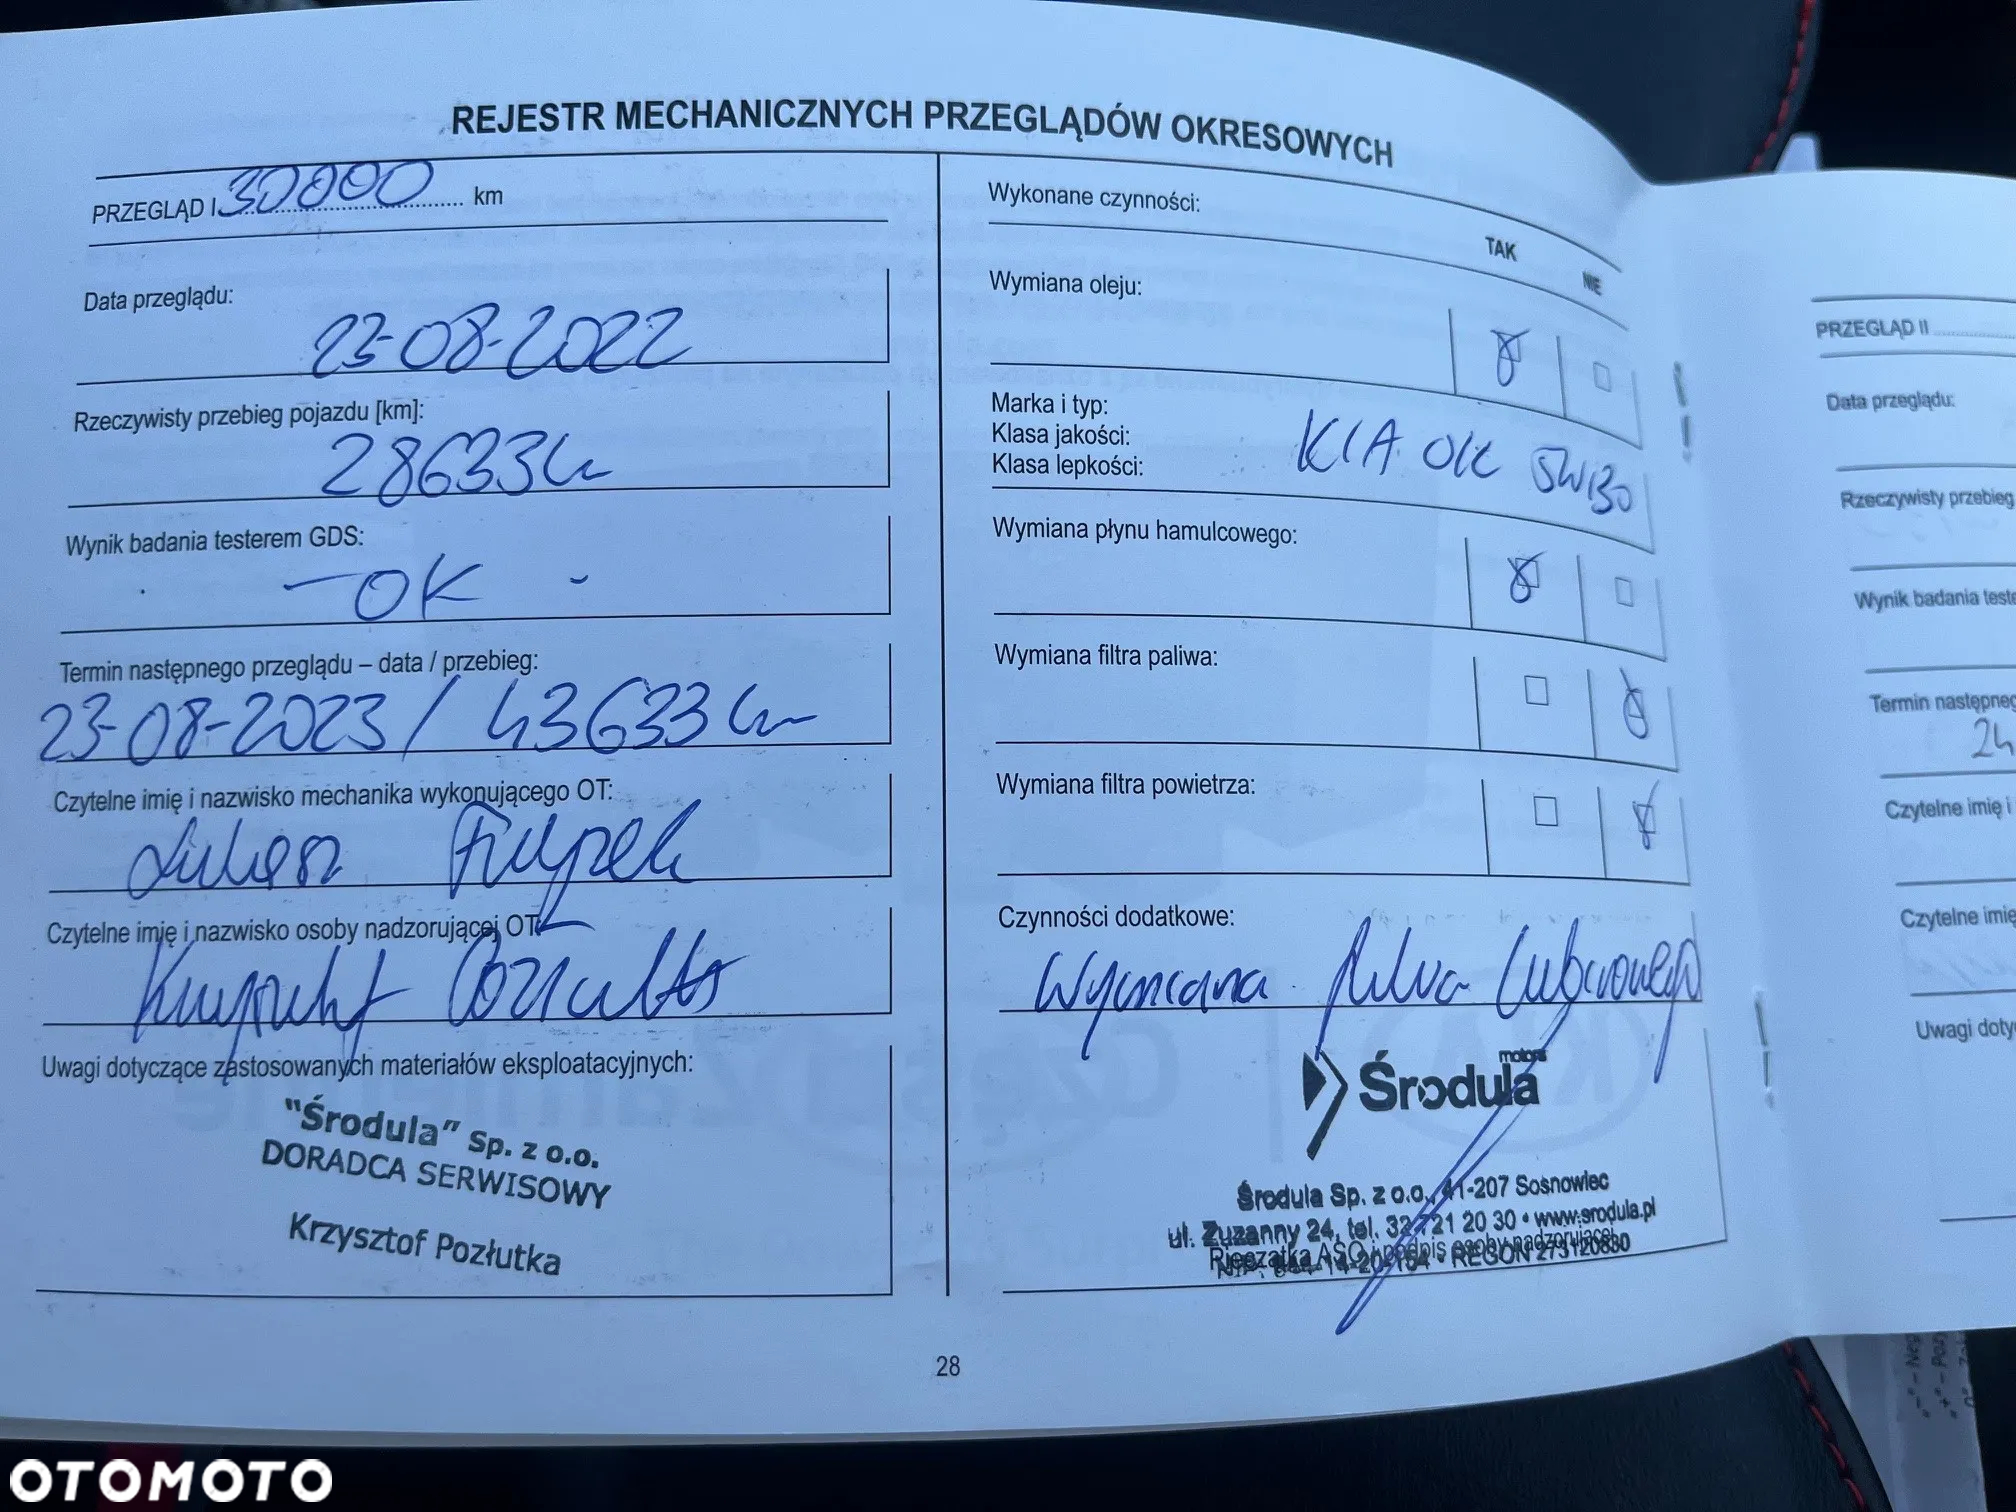 REJESTR MECHANICZNYCH PRZEGLĄDÓW OKRESOWYCH
PRZEGLĄD I 30000 km
Data przeglądu:
23-08-2022
Rzeczywisty przebieg pojazdu [km]:
28633 km
Wynik badania testerem GDS:
- OK -
Termin następnego przeglądu – data / przebieg:
23-08-2023 / 43633 km
Czytelne imię i nazwisko mechanika wykonującego OT:
Czytelne imię i nazwisko osoby nadzorującej OT:
Uwagi dotyczące zastosowanych materiałów eksploatacyjnych:
"Środula" Sp. z o.o.
DORADCA SERWISOWY
Krzysztof Pozłutka
Wykonane czynności:
TAK NIE
Wymiana oleju:
Marka i typ:
Klasa jakości:
Klasa lepkości:
KIA OK 5W30
Wymiana płynu hamulcowego:
Wymiana filtra paliwa:
Wymiana filtra powietrza:
Czynności dodatkowe:
Wymiana filtra kabinowego
Środula motors
Środula Sp. z o.o., 41-207 Sosnowiec
ul. Zuzanny 24, tel. 32 721 20 30 • www.srodula.pl
Pieczątka ASO i podpis osoby nadzorującej
REGON 273120830
28
PRZEGLĄD II
Data przeglądu:
Rzeczywisty przebieg
Wynik badania teste
Termin następneg
Czytelne imię i
Czytelne imię
Uwagi doty
OTOMOTO